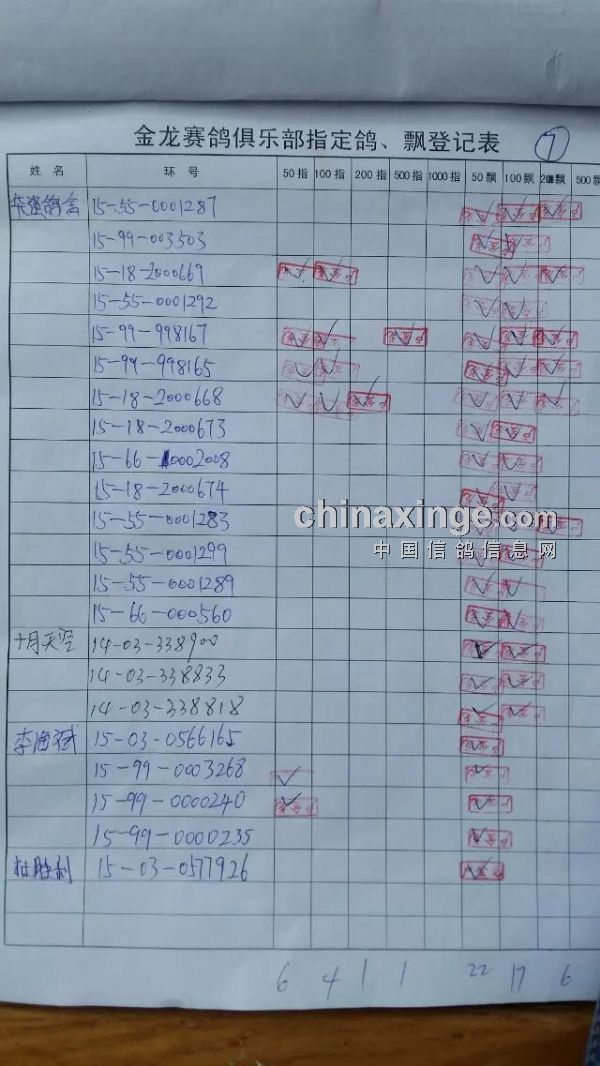 金龙赛鸽俱乐部指定鸽、飘登记表 7
姓 名 环 号 50指 100指 200指 500指 1000指 50飘 100飘 200飘 500飘
15-55-0001287
15-99-003503
15-18-2000669
15-55-0001292
15-99-998167
15-99-998165
15-18-2000668
15-18-2000673
15-66-0002008
15-18-2000674
15-55-0001283
15-55-0001299
15-55-0001289
15-66-000560
十月天空 14-03-338900
14-03-338833
14-03-338818
李海斌 15-03-0566165
15-99-0003268
15-99-0000240
15-99-0000235
杜胜利 15-03-0577926
6 4 1 1 22 17 6
chinaxinge.com
中国信鸽信息网